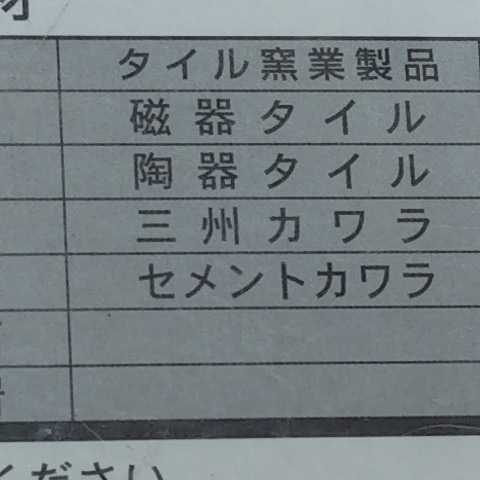 材
タイル窯業製品
磁器タイル
陶器タイル
三州カワラ
セメントカワラ
ください